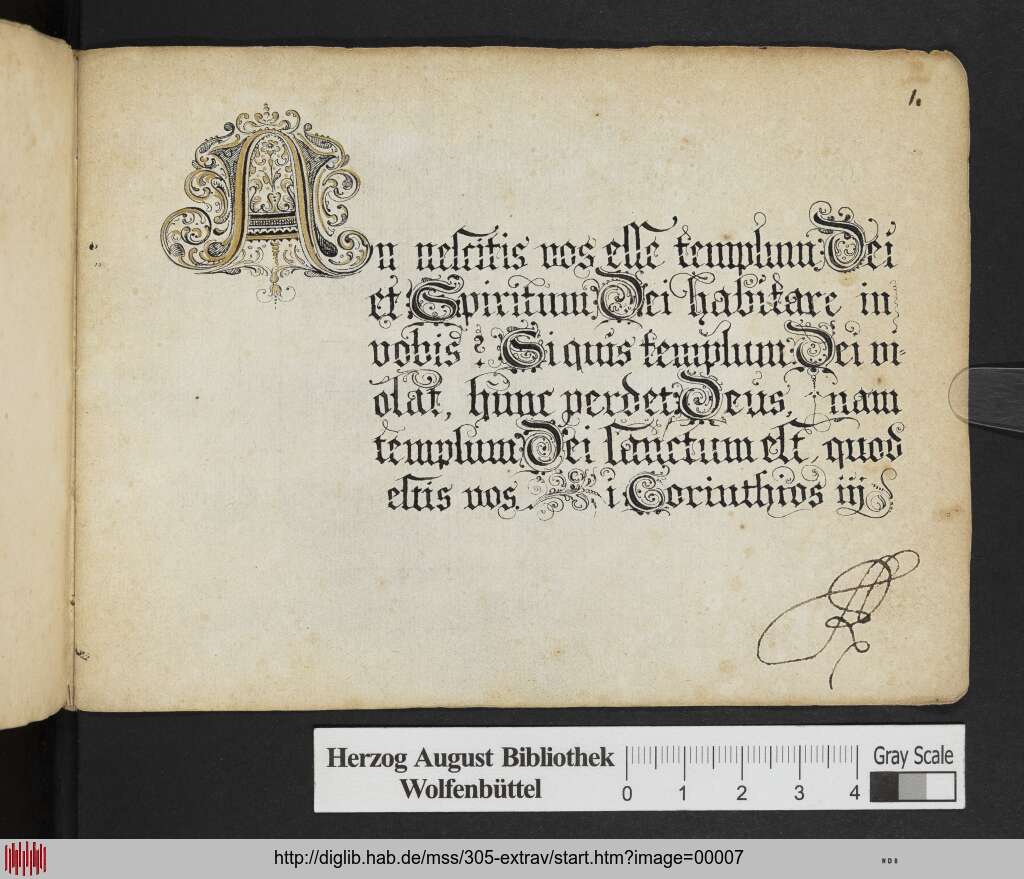 1.
An nescitis vos esse templum Dei
et Spiritum Dei habitare in
vobis? Si quis templum Dei vi-
olat, hunc perdet Deus, nam
templum Dei sanctum est quod
estis vos. i Corinthios iij
Herzog August Bibliothek
Wolfenbüttel
0 1 2 3 4
Gray Scale
http://diglib.hab.de/mss/305-extrav/start.htm?image=00007